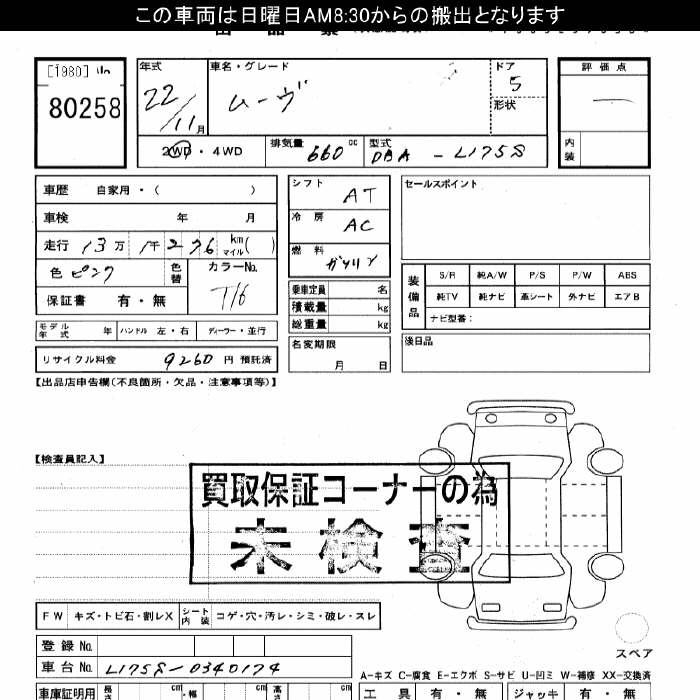 この車両は日曜日AM8:30からの搬出となります
[1980] 山
80258
年式
22/11月
車名・グレード
ムーヴ
ドア
5
形状
評価点
―
内装
2WD・4WD
排気量 660 cc
型式 DBA - L175S
車歴 自家用・( )
車検 年 月
走行 13万 1千276 km マイル ( )
色 ピンク
色替
カラーNo.
T16
保証書 有・無
モデル年式 年
ハンドル 左・右
ディーラー・並行
リサイクル料金 9260 円 預託済
シフト AT
冷房 AC
燃料 ガソリン
乗車定員 名
積載量 kg
総重量 kg
名変期限
月 日
セールスポイント
装備品
S/R 純A/W P/S P/W ABS
純TV 純ナビ 革シート 外ナビ エアB
ナビ型番:
後日品
【出品店申告欄(不良箇所・欠品・注意事項等)】
【検査員記入】
買取保証コーナーの為
未検査
FW キズ・トビ石・割レX
シート内装 コゲ・穴・汚レ・シミ・破レ・スレ
登録No.
車台No. L175S-0340174
スペア
A-キズ C-腐食 E-エクボ S-サビ U-凹ミ W-補修 XX-交換済
車庫証明用 長さ cm ・幅 cm 高さ cm
工具 有・無
ジャッキ 有・無